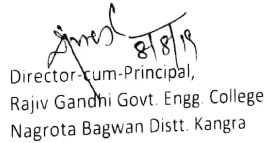 8/8/19
Director-cum-Principal,
Rajiv Gandhi Govt. Engg. College
Nagrota Bagwan Distt. Kangra